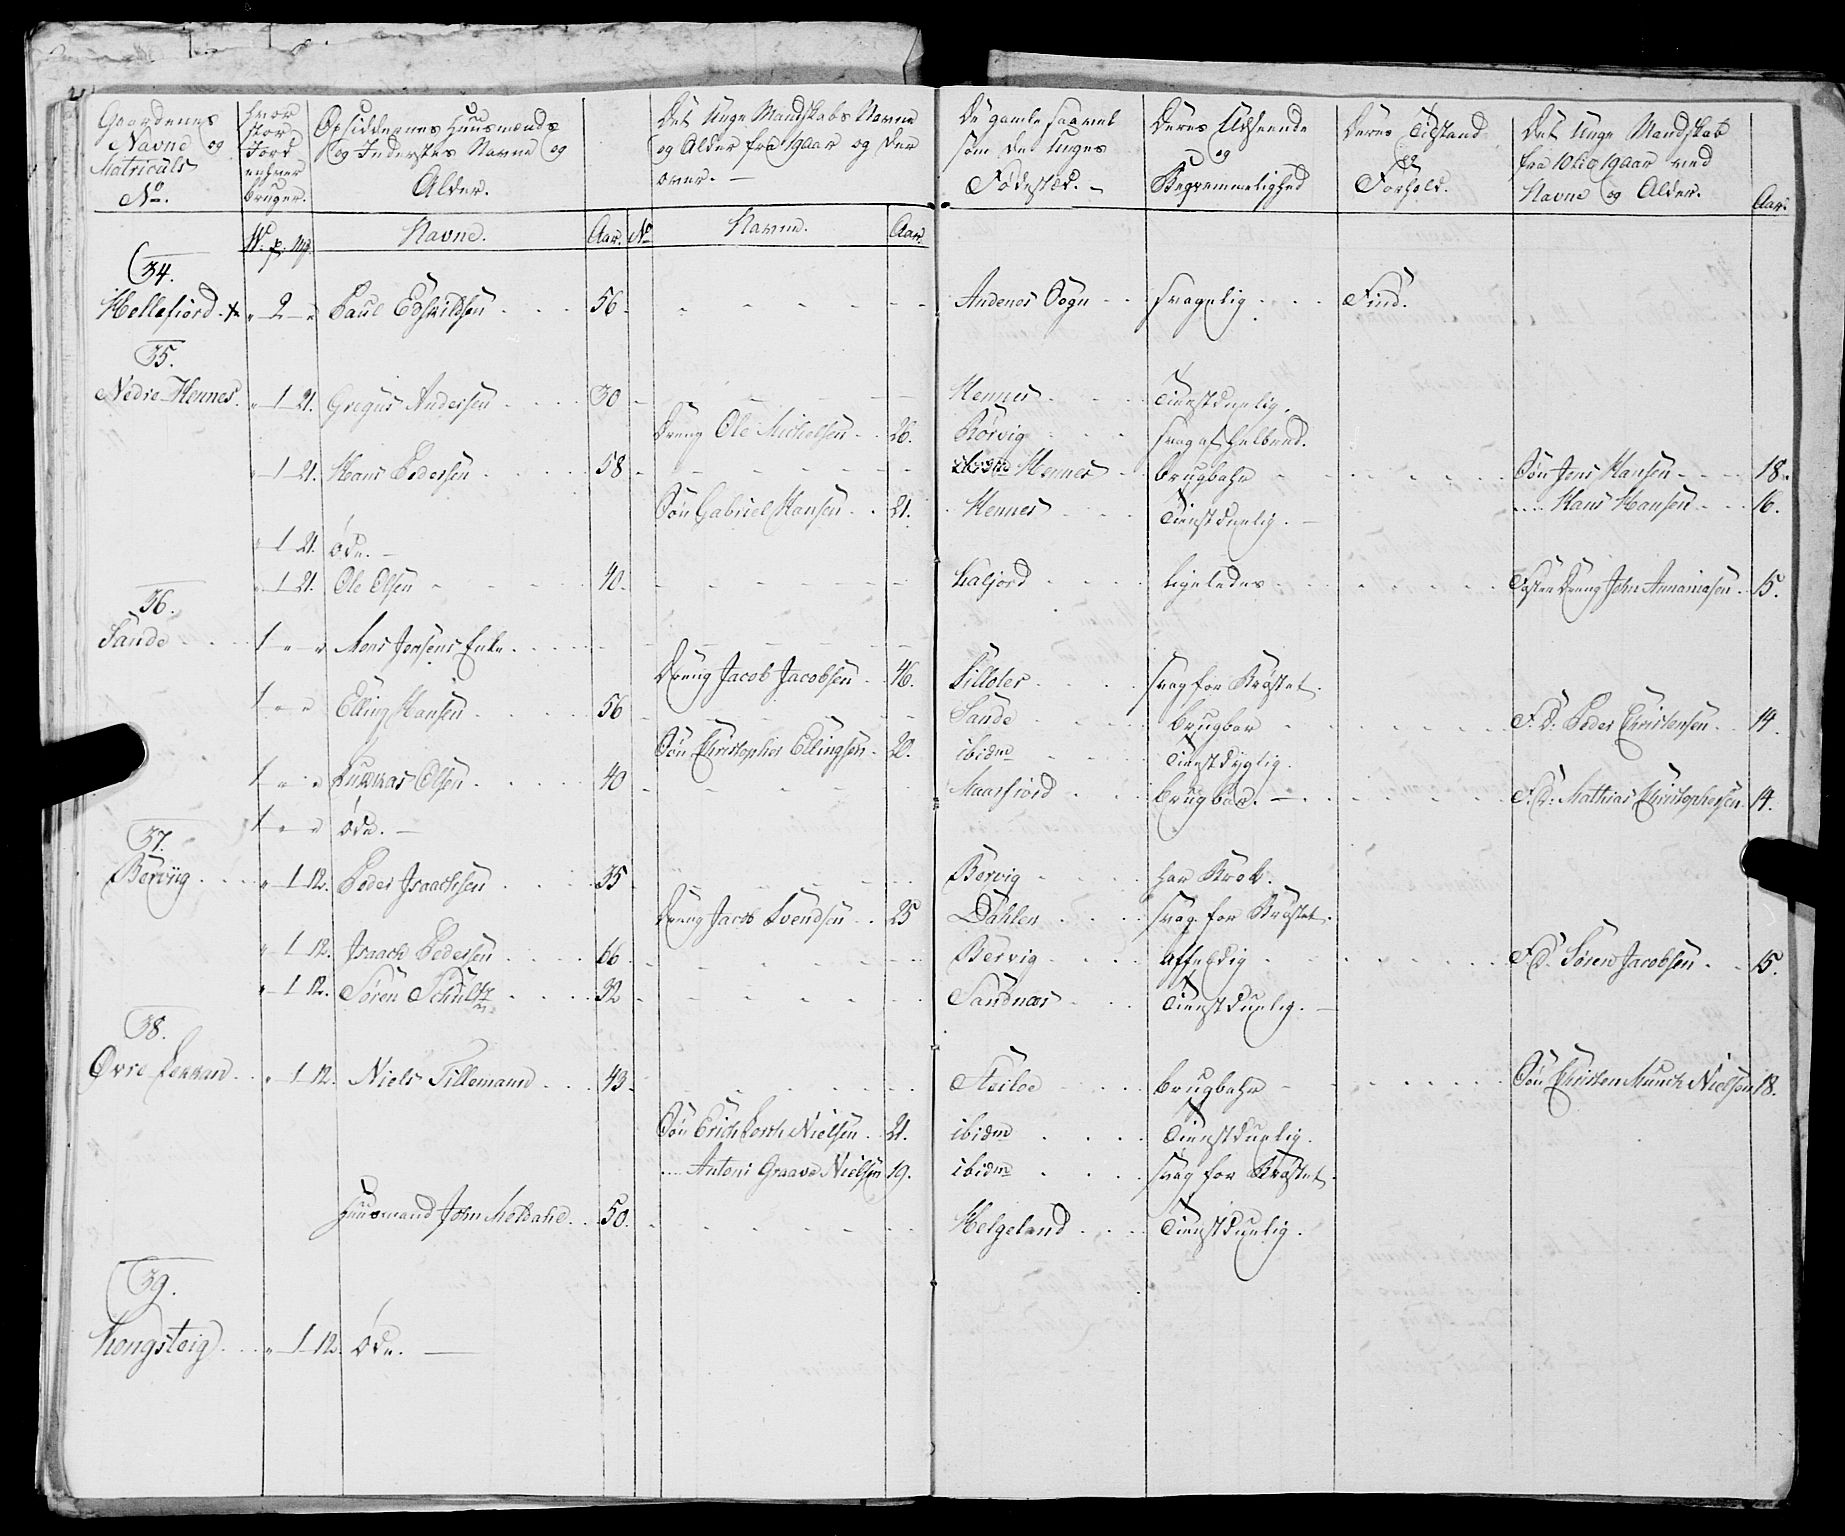 Gaardenes Navne og Matriculs No. | hvor stor Jord enhver bruger. | Opsiddernes Huusmænds og Inderstes Navne og Alder. | Det Unge Mandskabs Navne og Alder fra 19 aar og der over. — | De gamle saavel som de Unges Fødested. — | Deres Udseende og Beqvemmelighed | Deres Tilstand og Forhold. | Det Unge Mandskab fra 10 til 19 aar ved Navne og Alder. | Aar.
W. p. mk. | Navne. | Aar. | No | Navne. | Aar.
34.
Hellefiord | " 2 " | Paul Eschildsen | 56 | Andenes Sogn | svagelig | Find.
35.
Nedre Hennes | " 1 21. | Gregus Andersen | 30 | Hennes | Tienstduelig.
Dreng Ole Michelsen | 26. | Rørvig | svag af Helbred.
" 1 21. | Hans Pedersen | 58 | Hennes | brugbahr | Søn Jens Hansen | 18
Søn Gabriel Hansen | 21. | Hennes | Tienstduelig. — | Hans Hansen | 16.
" 1 21. | øde. —
" 1 21. | Ole Olsen | 40. | Kaljord | ligeledes | Foster Dreng John Annaniasen | 15.
36.
Sande | 1 " " | Mons Jensens Enke
Dreng Jacob Jacobsen | 46. | svag for Brøstet.
1 " " | Elling Hansen | 56 | Sande | brugbar | F: D: Peder Christensen | 14.
Søn Christopher Ellingsen | 20. | ibidm | Tienstdyglig.
1 " " | Olsen | 40 | Maarfiord | brugbar. — | F: D: Mathias Christophersen | 14.
1 " " | øde. —
37.
Berviig | " 1 12. | Peder Isaachsen | 35 | Bervig | har Brok.
Dreng Jacob Svendsen | 25 | Dahlen | svag for Brøstet.
" 1 12. | Isaach Pedersen | 66 | Bervig | Affældig | F: D: Søren Jacobsen | 15.
" 1 12. | Søren Schultz | 32 | Sandnæs | Tienstduelig. —
38.
Øvre | " 1 12. | Niels Tillemann | 43 | brugbahr | Søn Christen Munch Nielsen | 18.
Søn Erich Nielsen | 21. | ibidm | Tienstduelig.
Antoni Graave Nielsen | 19. | ibidm | svag for Brøstet.
Huusmand John | 50. | Helgeland | Tienstduelig.
39.
Kongsteig | " 1 12. | øde. —